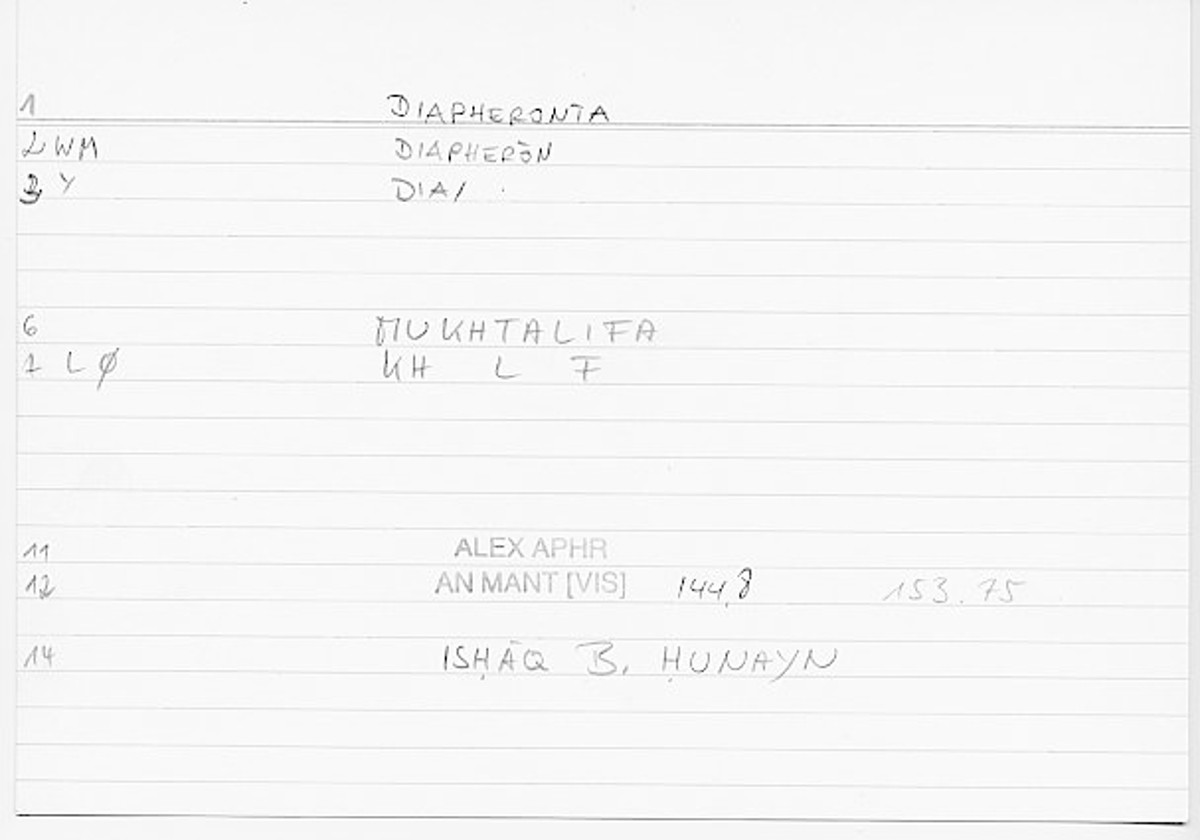 1 DIAPHERONTA
2 WM DIAPHERŌN
3 Y DIA/
6 MUKHTALIFA
7 L Ø KH L F
11 ALEX APHR
12 AN MANT [VIS] 144,8 153.75
14 ISḤĀQ B. ḤUNAYN